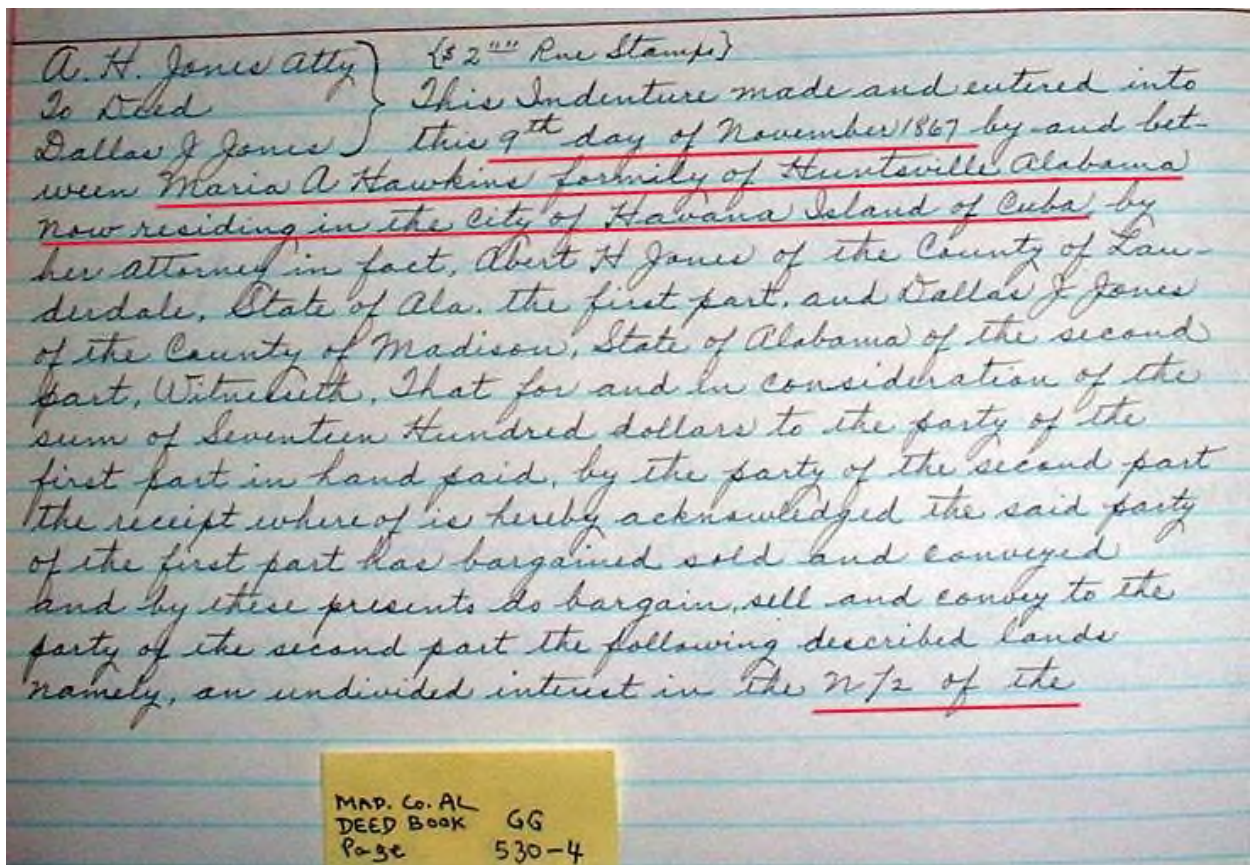 A. H. Jones Atty } {$2"" Rev Stamps}
To Deed } This Indenture made and entered into
Dallas J Jones } this 9th day of November 1867 by and bet-
ween Maria A Hawkins formily of Huntsville Alabama
now residing in the City of Havana Island of Cuba by
her attorney in fact, Abert H Jones of the County of Lau-
derdale, State of Ala. the first part, and Dallas J Jones
of the County of Madison, State of Alabama of the second
part, Witnesseth, That for and in consideration of the
sum of Seventeen Hundred dollars to the party of the
first part in hand paid, by the party of the second part
the receipt where of is hereby acknowledged the said party
of the first part has bargained sold and conveyed
and by these presents do bargain, sell and convey to the
party of the second part the following described lands
namely, an undivided interest in the N/2 of the
MAD. Co. AL
DEED BOOK GG
Page 530-4